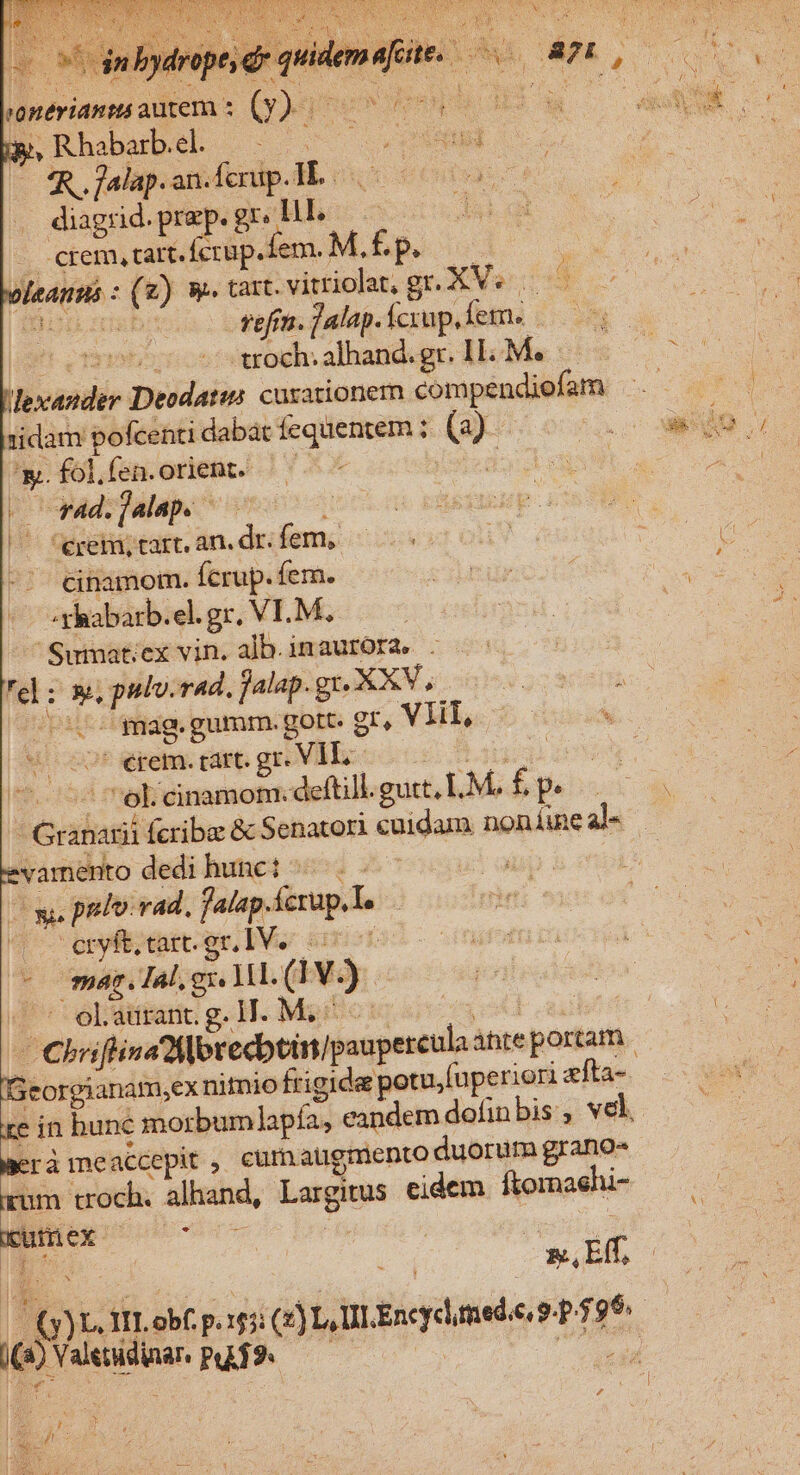 in hydrope, & quidem aſcite. 871
onerianus autem : (y)
℞, Rhabarb. el.
R. Jalap. an. ſcrup. II.
diagrid. præp. gr. III.
crem, tart. ſcrup. ſem. M. f. p.
oleanus : (z) ℞. tart. vitriolat, gr. XV.
reſin. Jalap. ſcrup, ſem.
troch. alhand. gr. II. M.
lexander Deodatus curationem compendioſam
uidam poſcenti dabat ſequentem : (a)
℞. fol. ſen. orient.
rad. Jalap.
crem, tart. an. dr. ſem,
cinamom. ſcrup. ſem.
rhabarb. el. gr, VI. M.
Sumat. ex vin. alb. in aurora.
el : ℞, pulv. rad. Jalap. gr. XXV,
mag. gumm. gott. gr, VIII,
crem. tart. gr. VII.
ol. cinamom. deſtill. gutt, I. M. f. p.
Granarii ſcribæ & Senatori cuidam non ſine al-
evamento dedi hunc :
℞. pulv. rad, Jalap. ſcrup, I.
cryſt, tart. gr. IV.
mag. Jal, gr. III. (IV.)
ol. aurant. g. II. M.
Chriſtina Albrechtin/ paupercula ante portam
Georgianam, ex nimio frigidæ potu, ſuperiori æſta-
te in hunc morbum lapſa, eandem doſin bis, vel
erà me accepit, cum augmento duorum grano-
rum troch. alhand, Largitus eidem ſtomachi-
cum ex
℞, Eſſ.
(y) L. III. obſ. p. 153; (z) L, III. Encycl. med. c, 9. p. 596.
(a) Valetudinar. p. 159.